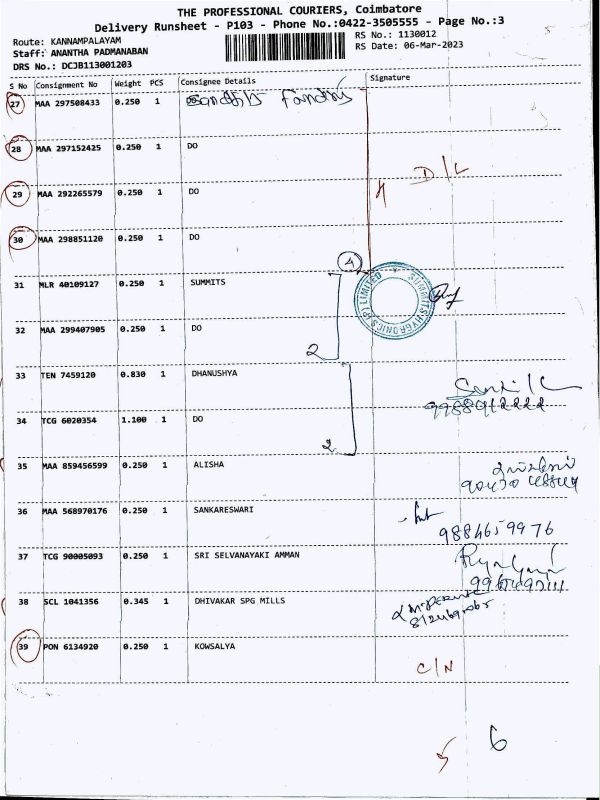 THE PROFESSIONAL COURIERS, Coimbatore
Delivery Runsheet - P103 - Phone No.:0422-3505555 - Page No.:3
Route: KANNAMPALAYAM
Staff: ANANTHA PADMANABAN
DRS No.: DCJB113001203
RS No.: 1130012
RS Date: 06-Mar-2023
S No Consignment No Weight PCS Consignee Details Signature
27 MAA 297508433 0.250 1
28 MAA 297152425 0.250 1 DO
29 MAA 292265579 0.250 1 DO
D/L
30 MAA 298851120 0.250 1 DO
4
31 MLR 40109127 0.250 1 SUMMITS
SUMMITS HYGRONICS (P) LIMITED
32 MAA 299407905 0.250 1 DO
2
33 TEN 7459120 0.830 1 DHANUSHYA
34 TCG 6020354 1.100 1 DO
2
35 MAA 859456599 0.250 1 ALISHA
36 MAA 568970176 0.250 1 SANKARESWARI
9884659976
37 TCG 90005093 0.250 1 SRI SELVANAYAKI AMMAN
38 SCL 1041356 0.345 1 DHIVAKAR SPG MILLS
39 PON 6134920 0.250 1 KOWSALYA
C/N
5 6